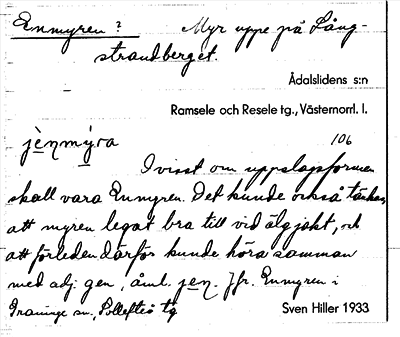 Enmyren? Myr uppe på Lång-
strandberget.
Ådalslidens s:n
Ramsele och Resele tg., Västernorrl. l.
jènmýra 106
Ovisst om uppslagsformen
skall vara Enmyren. Det kunde också tänkas,
att myren legat bra till vid älgjakt, och
att förleden därför kunde höra samman
med adj. gen, åml. jen. Jfr. Enmyren i
Graninge sn, Sollefteå tg
Sven Hiller 1933